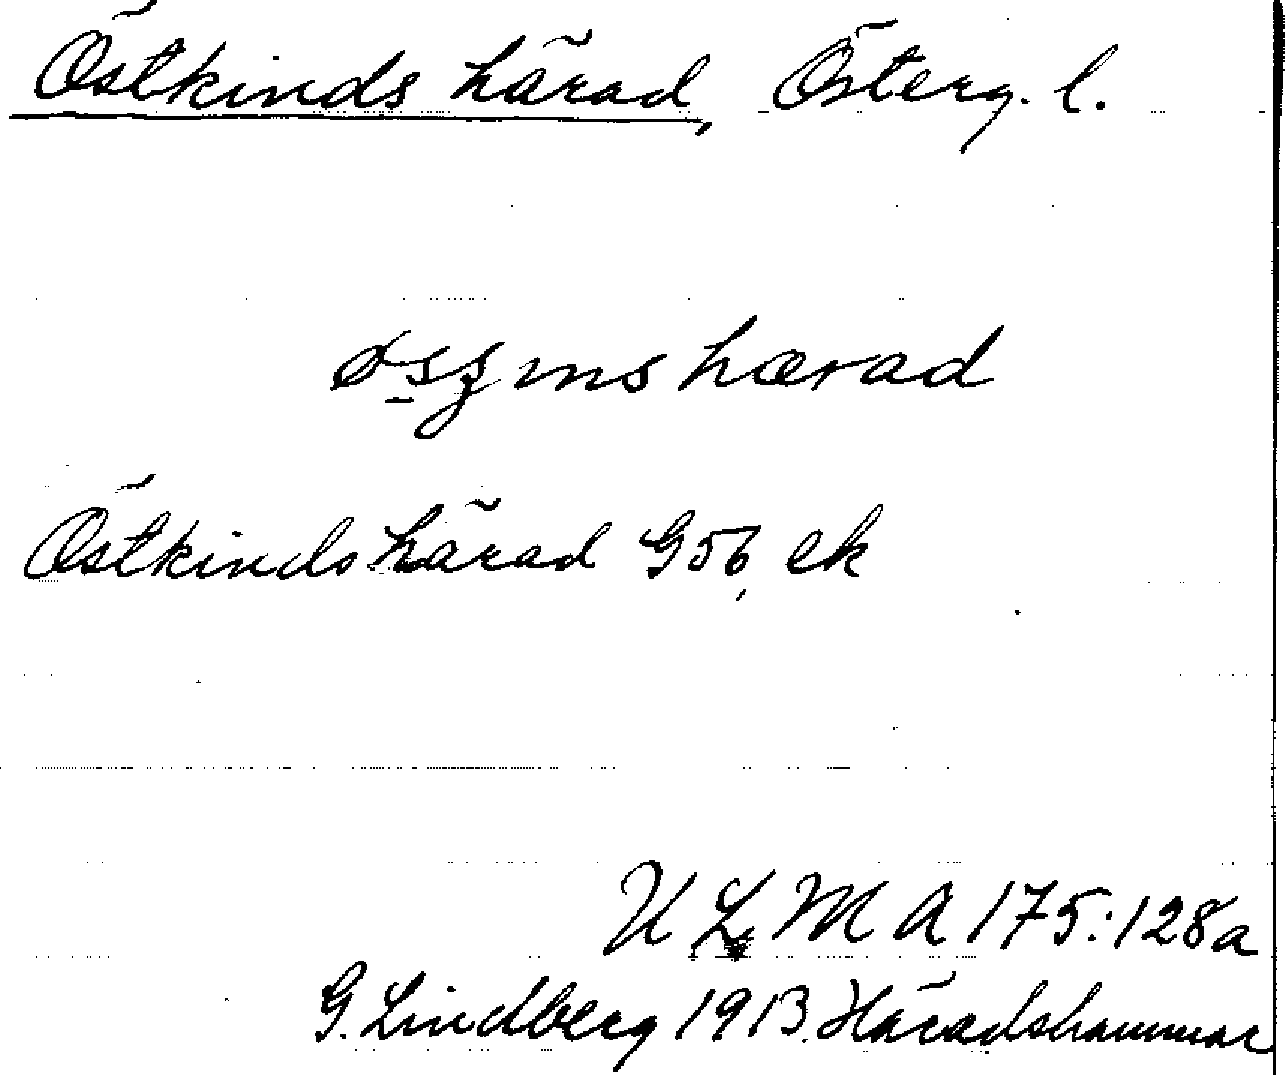 Östkinds härad, Österg. l.
härad
Östkinds härad G56, ek
ULMA 175:128a
G. Lindberg 1913. Häradshammar